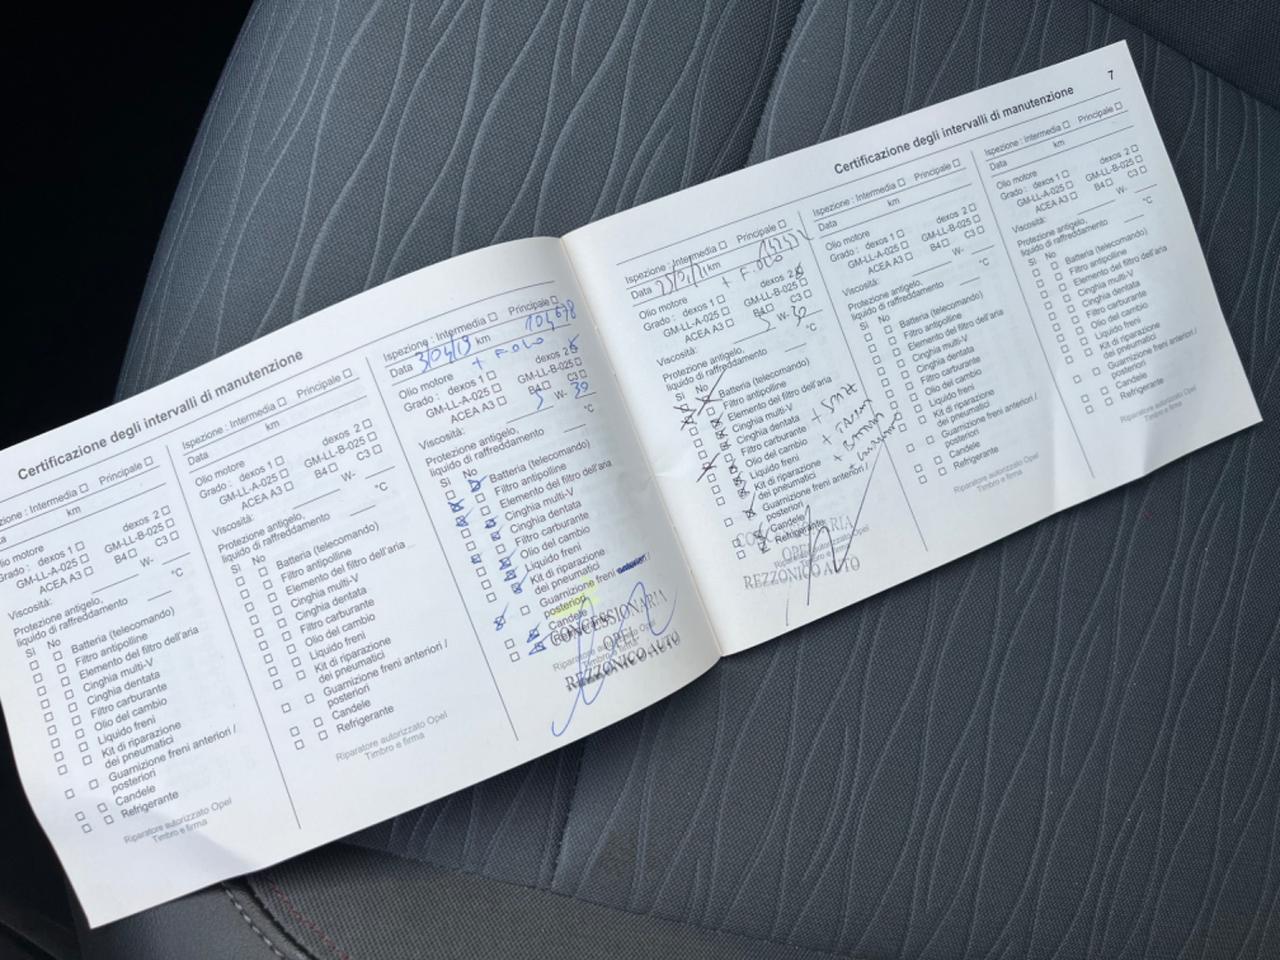 Certificazione degli intervalli di manutenzione
zione : Intermedia Principale
km
motore
Grado : dexos 1 dexos 2
GM-LL-A-025 GM-LL-B-025
ACEA A3 B4 C3
Viscosità: W-
Protezione antigelo,
liquido di raffreddamento °C
Si No
Batteria (telecomando)
Filtro antipolline
Elemento del filtro dell'aria
Cinghia multi-V
Cinghia dentata
Filtro carburante
Olio del cambio
Liquido freni
Kit di riparazione
dei pneumatici
Guarnizione freni anteriori /
posteriori
Candele
Refrigerante
Riparatore autorizzato Opel
Timbro e firma
Ispezione : Intermedia Principale
Data km
Olio motore
Grado : dexos 1 dexos 2
GM-LL-A-025 GM-LL-B-025
ACEA A3 B4 C3
Viscosità: W-
Protezione antigelo,
liquido di raffreddamento °C
Si No
Batteria (telecomando)
Filtro antipolline
Elemento del filtro dell'aria
Cinghia multi-V
Cinghia dentata
Filtro carburante
Olio del cambio
Liquido freni
Kit di riparazione
dei pneumatici
Guarnizione freni anteriori /
posteriori
Candele
Refrigerante
Riparatore autorizzato Opel
Timbro e firma
Ispezione : Intermedia Principale
Data 3/04/19 km 104678
Olio motore + F. OLIO
Grado : dexos 1 dexos 2
GM-LL-A-025 GM-LL-B-025
ACEA A3 B4 C3
Viscosità: 5 W- 30
Protezione antigelo,
liquido di raffreddamento °C
Si No
Batteria (telecomando)
Filtro antipolline
Elemento del filtro dell'aria
Cinghia multi-V
Cinghia dentata
Filtro carburante
Olio del cambio
Liquido freni
Kit di riparazione
dei pneumatici
Guarnizione freni /
posteriori
Candele
CONCESSIONARIA
OPEL
Riparatore autorizzato Opel
Timbro e firma
REZZONICO AUTO
7
Certificazione degli intervalli di manutenzione
Ispezione : Intermedia Principale
Data km
Olio motore + F. OLIO
Grado : dexos 1 dexos 2
GM-LL-A-025 GM-LL-B-025
ACEA A3 B4 C3
Viscosità: 5 W- 30
Protezione antigelo,
liquido di raffreddamento °C
Si No
Batteria (telecomando)
Filtro antipolline
Elemento del filtro dell'aria
Cinghia multi-V
Cinghia dentata
Filtro carburante
Olio del cambio
Liquido freni
Kit di riparazione
dei pneumatici
Guarnizione freni anteriori /
posteriori
Candele
Refrigerante
CONCESSIONARIA
OPEL
Riparatore autorizzato Opel
Timbro e firma
REZZONICO AUTO
Ispezione : Intermedia Principale
Data km
Olio motore
Grado : dexos 1 dexos 2
GM-LL-A-025 GM-LL-B-025
ACEA A3 B4 C3
Viscosità: W-
Protezione antigelo,
liquido di raffreddamento °C
Si No
Batteria (telecomando)
Filtro antipolline
Elemento del filtro dell'aria
Cinghia multi-V
Cinghia dentata
Filtro carburante
Olio del cambio
Liquido freni
Kit di riparazione
dei pneumatici
Guarnizione freni anteriori /
posteriori
Candele
Refrigerante
Riparatore autorizzato Opel
Timbro e firma
Ispezione : Intermedia Principale
Data km
Olio motore
Grado : dexos 1 dexos 2
GM-LL-A-025 GM-LL-B-025
ACEA A3 B4 C3
Viscosità: W-
Protezione antigelo,
liquido di raffreddamento °C
Si No
Batteria (telecomando)
Filtro antipolline
Elemento del filtro dell'aria
Cinghia multi-V
Cinghia dentata
Filtro carburante
Olio del cambio
Liquido freni
Kit di riparazione
dei pneumatici
Guarnizione freni anteriori /
posteriori
Candele
Refrigerante
Riparatore autorizzato Opel
Timbro e firma